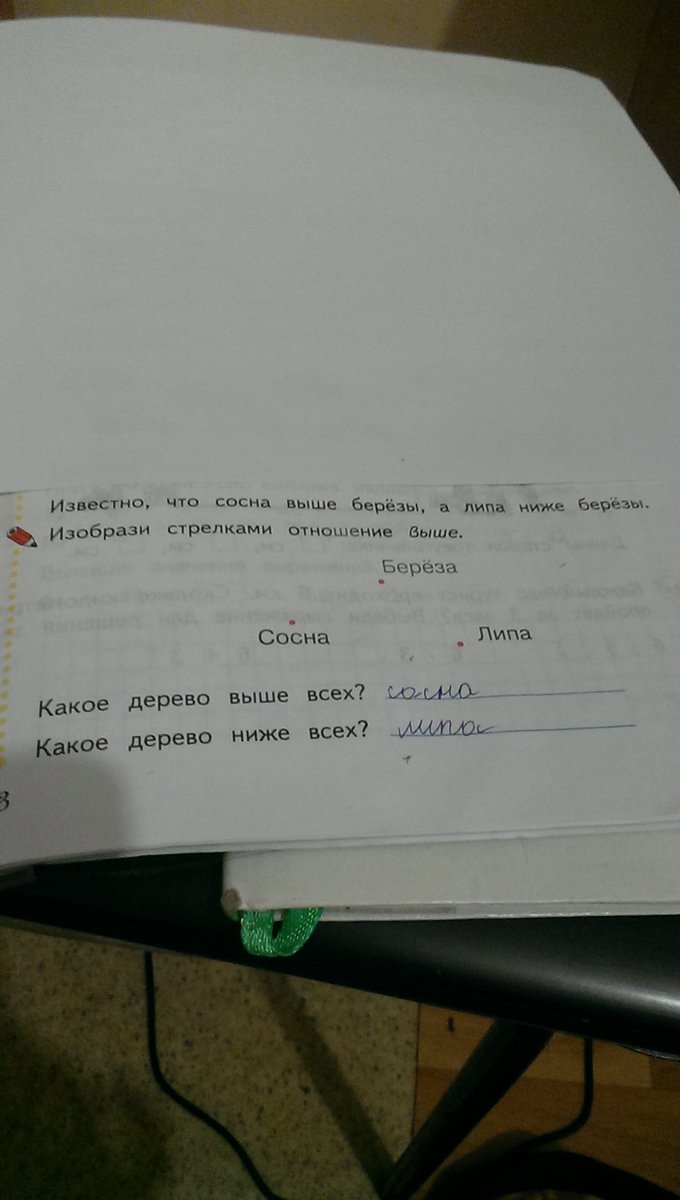 Известно, что сосна выше берёзы, а липа ниже берёзы.
Изобрази стрелками отношение выше.
Берёза
Сосна
Липа
Какое дерево выше всех? сосна
Какое дерево ниже всех? липа